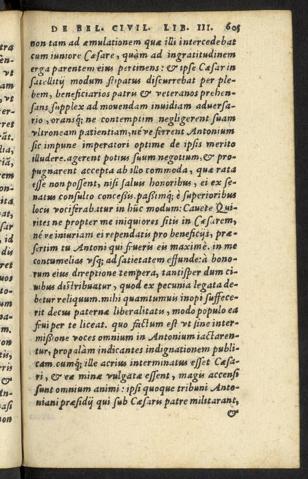 DE BEL. CIVIL. LIB. III. 605
non tam ad æmulationem quæ illi intercedebat
cum iuniore Cæsare, quàm ad ingratitudinem
erga parentem eius pertinens: & ipse Cæsar in
satellitũ modum stipatus discurrebat per ple-
bem, beneficiarios patris & veteranos prehen-
sans, supplex ad mouendam inuidiam aduersa-
rio, oransq; ne contemptim negligerent suam
vltroneam patientiam, né ve ferrent Antonium
sic impune imperatori optime de ipsis merito
illudere. agerent potius suum negotium, & pro-
pugnarent accepta ab illo commoda, qua rata
esse non possent, nisi saluis honoribus, ei ex se-
natus consulto concessis. passimq; è superioribus
locis vociferabatur in hũc modum: Cauete Qui-
rites ne propter me iniquiores sitis in Cæsarem,
né ve iniuriam ei rependatis pro beneficijs, præ-
sertim tu Antoni qui fueris eius maximè. in me
contumelias vsq; ad satietatem effunde: à bono-
rum eius direptione tempera, tantisper dum ci-
uibus distribuatur, quod ex pecunia legata de-
betur reliquum. mihi quamtumuis inopi suffece-
rit decus paternæ liberalitatis, modo populo ea
frui per te liceat. quo factum est vt sine inter-
missione voces omnium in Antonium iactaren-
tur, propalàm indicantes indignationem publi-
cam. cumq; ille acrius interminatus esset Cæsa-
ri, & eæ minæ vulgatæ essent, magis accensi
sunt omnium animi: ipsi quoque tribuni Anto-
niani præsidij qui sub Cæsaris patre militarant,
&